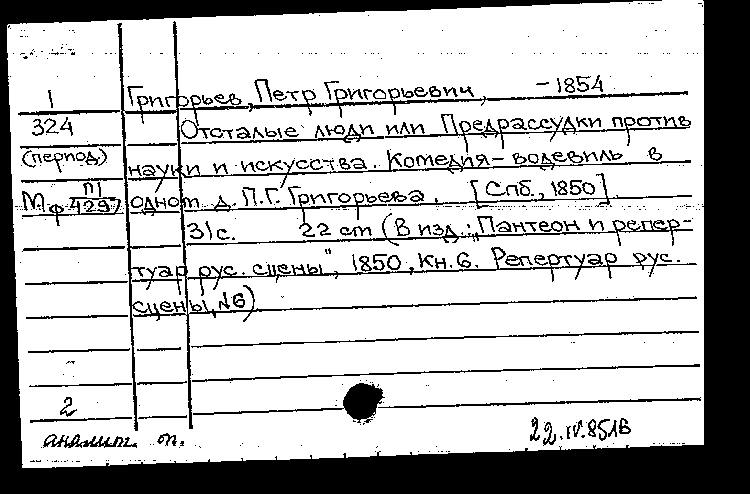 1 Григорьев, Петр Григорьевич, -1854
324 Отсталые люди или Предрассудки против
(период) науки и искусства. Комедия-водевиль в
Мф П1/4297 одном д. П.Г. Григорьева. [Спб., 1850].
31с. 22 cm (В изд.: „Пантеон и репер-
туар рус. сцены", 1850, кн.6. Репертуар рус.
сцены, №6)
2
аналит. п. 22.IV.85